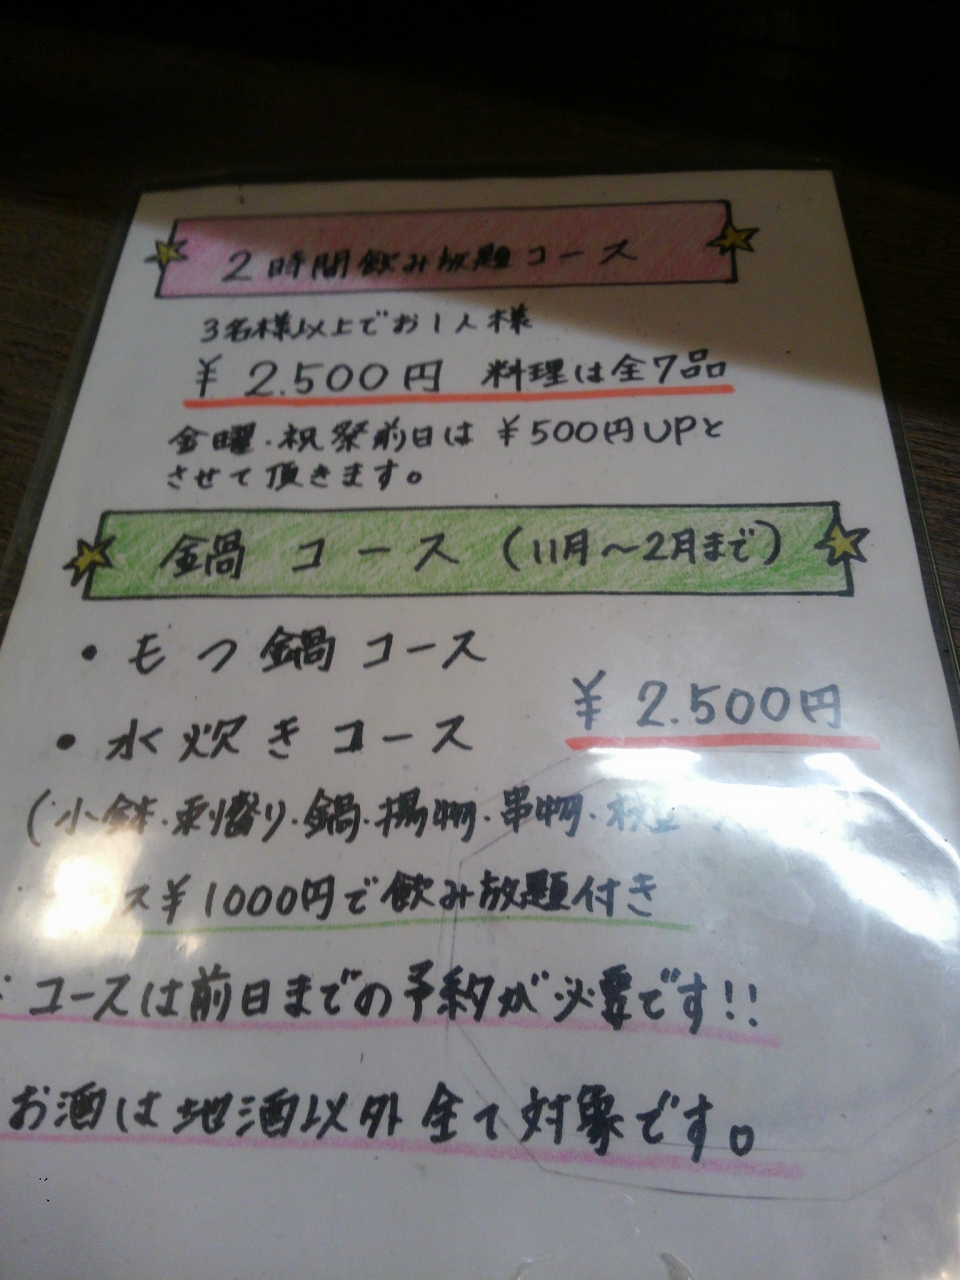 2時間飲み放題コース
3名様以上でお1人様
¥2.500円 料理は全7品
金曜・祝祭前日は¥500円UPと
させて頂きます。
鍋コース(11月～2月まで)
・もつ鍋コース
¥2.500円
・水炊きコース
(小鉢・刺盛り・鍋・揚物・串物・
ス¥1000円で飲み放題付き
コースは前日までの予約が必要です!!
お酒は地酒以外全て対象です。